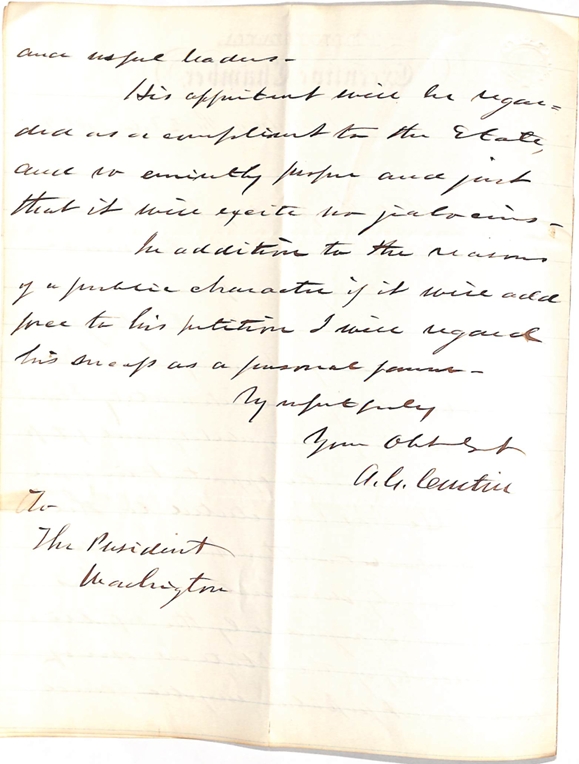 and useful leaders -
His appointment will be regar=
ded as a compliment to the State,
and so eminently proper and just
that it will excite no jealousies -
In addition to the reasons
of a public character if it will add
force to his petition I will regard
his success as a personal favor -
Very respectfully
Your Obt Svt
A. G. Curtin
To
The President
Washington